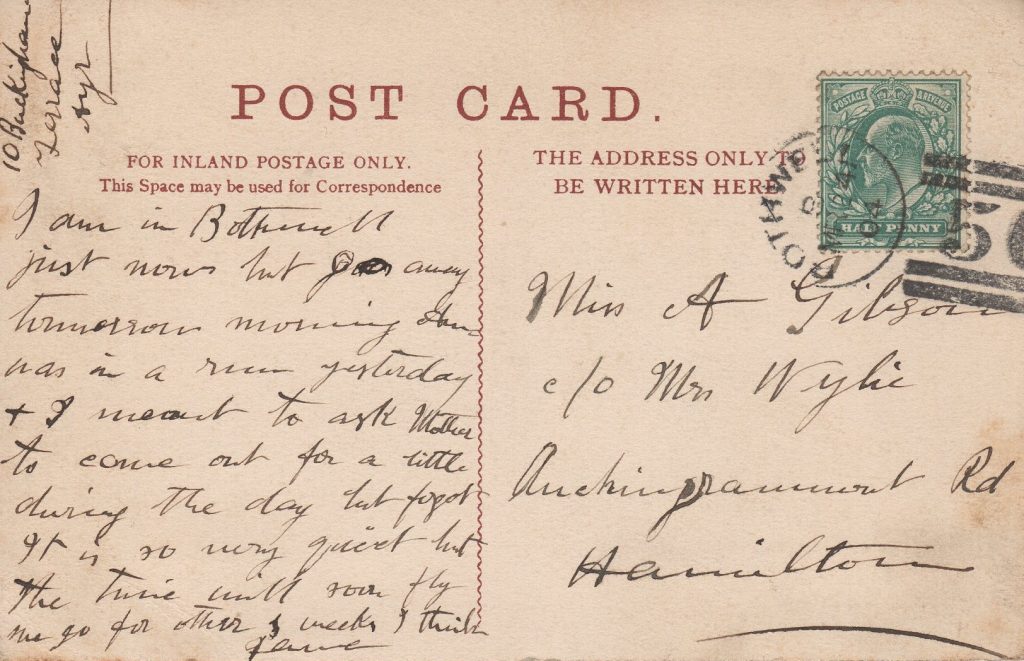 10 Buckingham
Terrace
Ayr
POST CARD.
FOR INLAND POSTAGE ONLY.
This Space may be used for Correspondence
THE ADDRESS ONLY TO
BE WRITTEN HERE
POSTAGE & REVENUE
HALF PENNY
BOTHWELL
I am in Bothwell
just now but goes away
tomorrow morning
was in a run yesterday
+ I meant to ask Mother
to come out for a little
during the day but forgot
It is so very quiet but
the time will soon fly
we go for other weeks I think
Miss A Gibson
c/o Mrs Wylie
Auchingrammont Rd
Hamilton